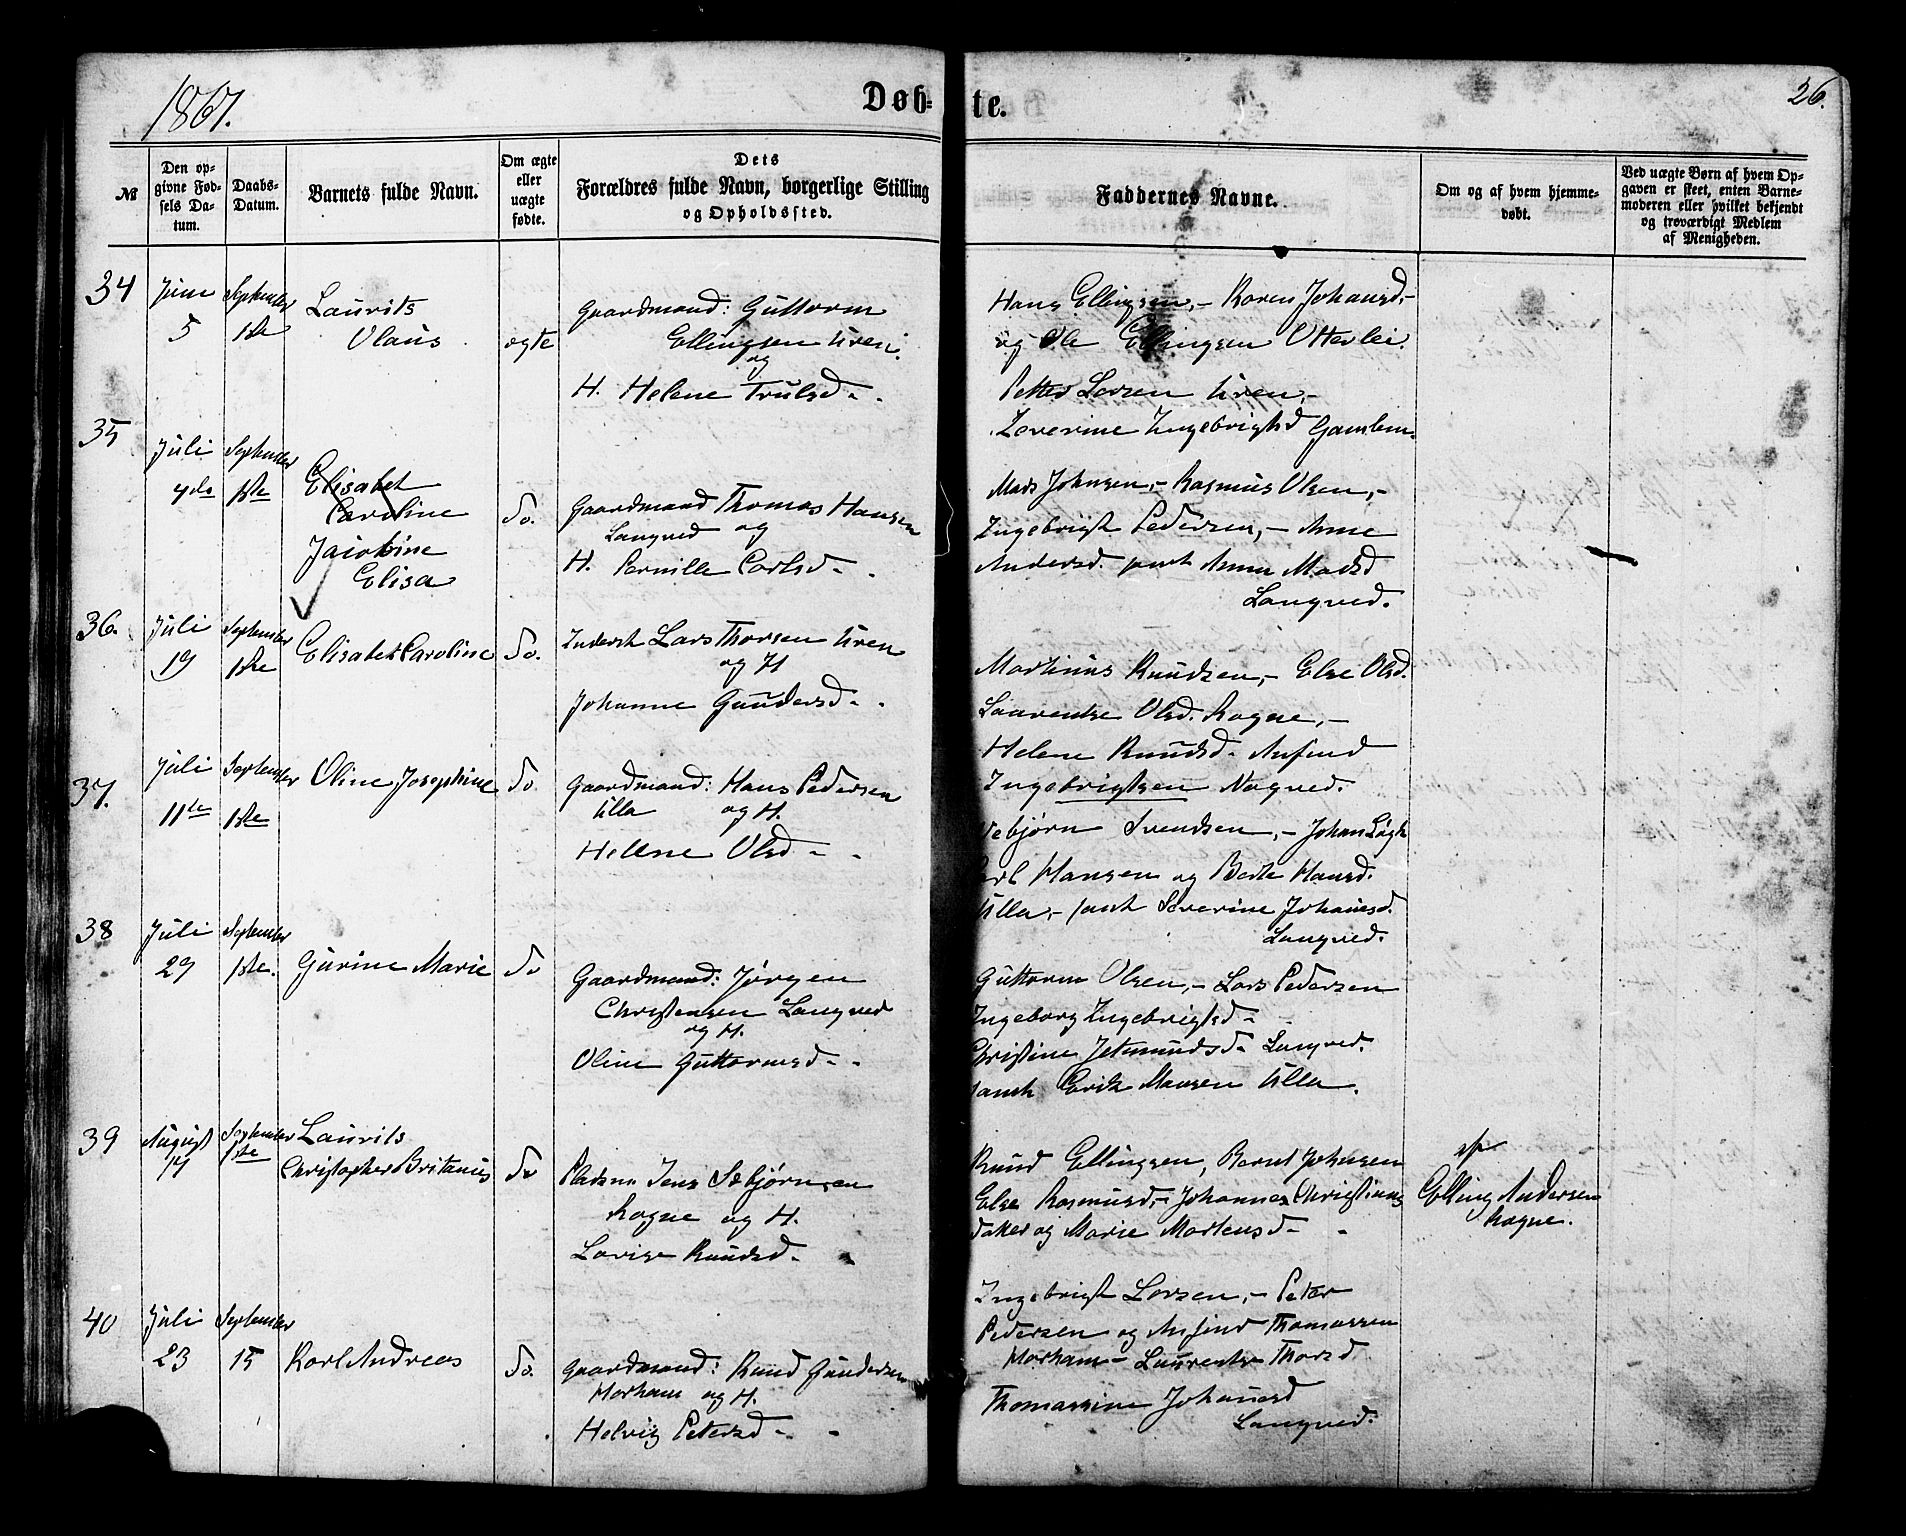 1867.
Døb-
te.
26.
№
Den op-
givne Fød-
sels Da-
tum.
Daabs-
Datum.
Barnets fulde Navn.
Om ægte
eller
uægte
fødte.
Dets
Forældres fulde Navn, borgerlige Stilling
og Opholdssted.
Faddernes Navne.
Om og af hvem hjemme-
døbt.
Ved uægte Børn af hvem Op-
gaven er skeet, enten Barne-
moderen eller hvilket bekjendt
og troværdigt Medlem
af Menigheden.
34
Juni
5
September
1ste
Laurits
Olaus
ægte
Gaardmand: Guttorm
Ellingsen Uren
og
H. Helene Trulsd -
Hans Ellingsen, - Karen Johansd, -
og Ole Ellingsen Otterlei.
Petter Larsen Uren, -
Zeverine Ingebrigtsd
35
Juli
4de
September
1ste
Elisabet
Caroline
Jacobine
Elisa
do.
Gaardmand Thomas Hansen
Langved og
H. Pernilla Carlsd -
Mads Johnsen, - Rasmus Olsen, -
Ingebrigt Pedersen, - Anne
Andersd samt Anna Madsd
Langved.
36.
Juli
19
September
1ste
Elisabet Caroline
do.
Inderst Lars Thorsen Uren
og H
Johanne Gundersd -
Martinus Knudsen, - Else Olsd.
Laurentse Olsd. Rogne, -
Helene Knudsd. Anfind
Ingebrigtsen Nogved.
37.
Juli
11te
September
1ste
Oline Josephine
do
Gaardmand: Hans Pedersen
Ulla og H.
Hellene Olsd -
Vebjørn Svendsen, - Johan
Hansen og Berte Hansd.
Ulla, - samt Severine Johansd.
Langved.
38
Juli
29
September
1ste.
Gurine Marie
do
Gaardmand: Jørgen
Christensen Langved
og H.
Oline Guttormsd -
Guttorm Olsen, - Lars Pedersen
Ingeborg Ingebrigtsd -
Christine Jetmundsd - Langved.
samt Erik Hansen Ulla.
39
August
14
September
1ste
Laurits
Christopher Britanius
do
Pladsm. Jens Sebjørnsen
Rogne og H.
Lovise Knudsd -
Knud Ellingsen, Bernt Johnsen
Else Rasmusd, - Johannes Christians
og Marie Martensd -
af
Elling Andersen
Rogne.
40
Juli
23
September
15
Karl Andreas
do.
Gaardmand: Knud Gundersen
Harham og H.
Helvig Petersd -
Ingebrigt Larsen, - Peter
Pedersen og Anfind Thomassen
Harham - Laurentse Thorsd
Thomassine Johansd
Langved.